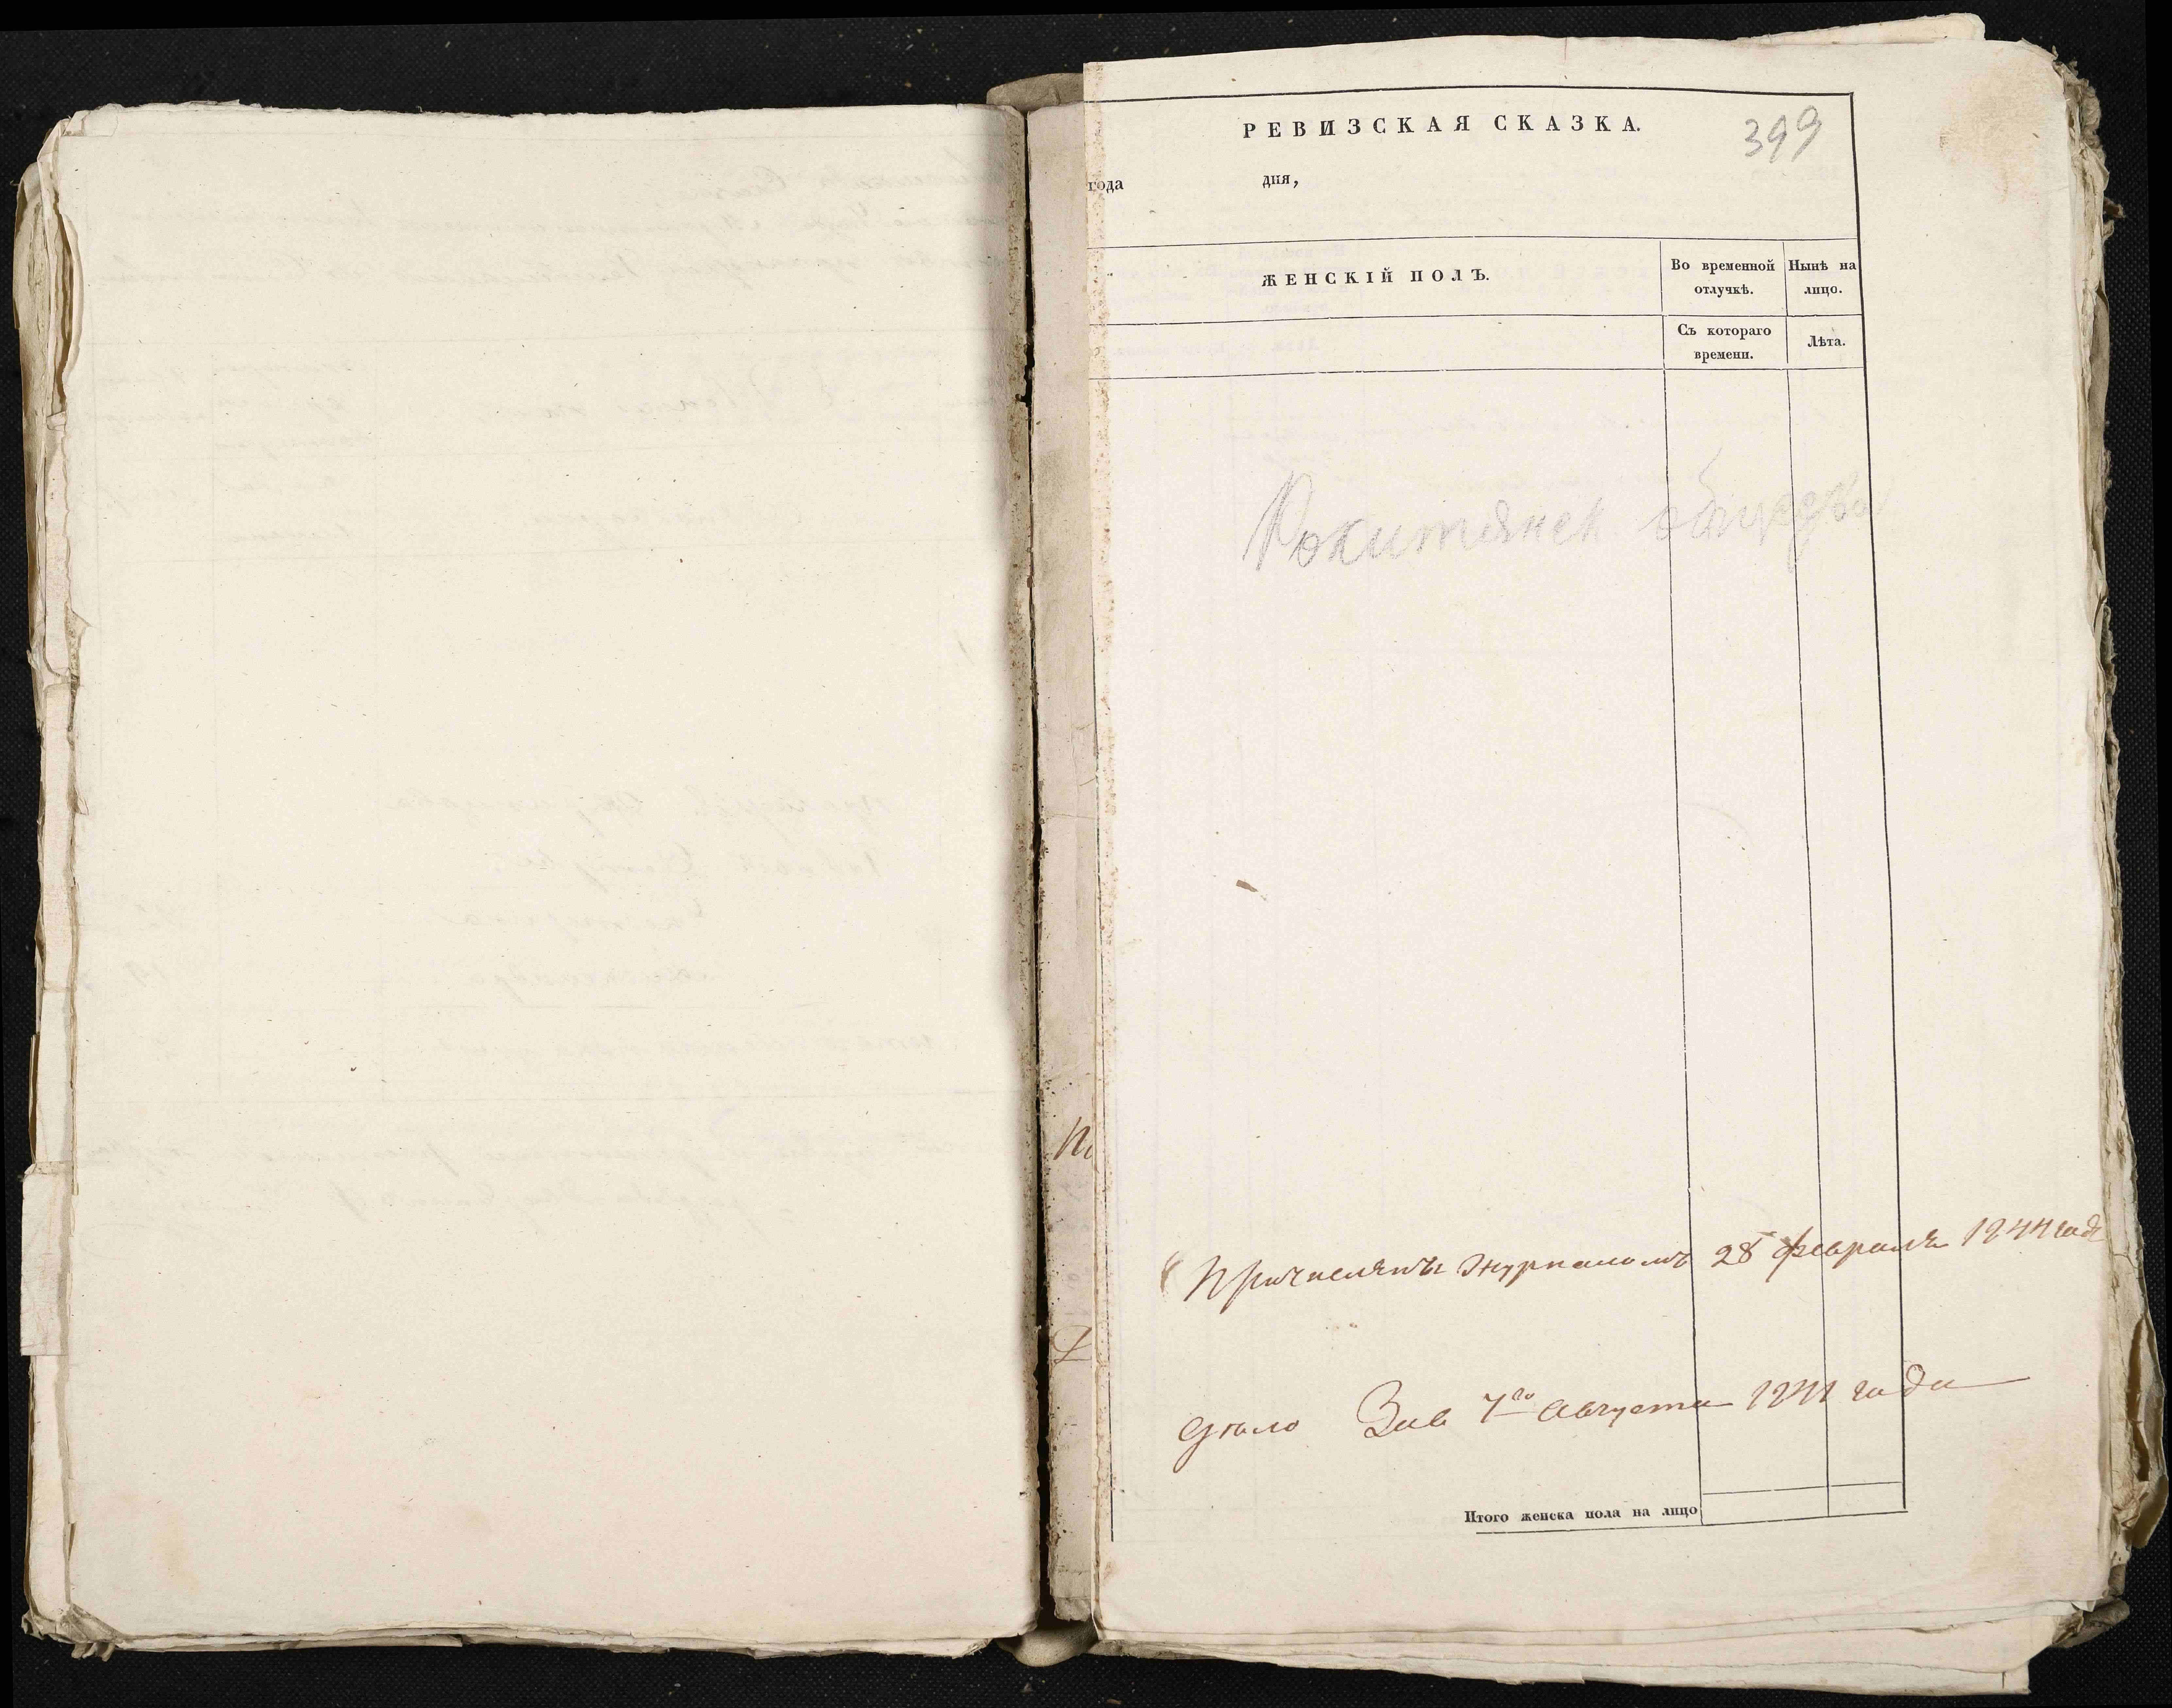 РЕВИЗСКАЯ СКАЗКА.
399
года дня,
ЖЕНСКІЙ ПОЛЪ.
Во временной отлучкѣ.
Нынѣ на лицо.
Съ котораго времени.
Лѣта.
Рокитянск. общества
Причислены журналомъ 28 февраля 1844 года
дѣло 7го Августа 1841 года
Итого женска пола на лицо